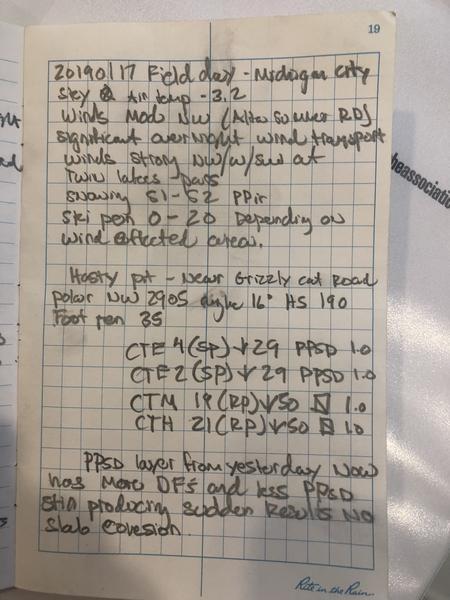 19
20190117 Field day - Michigan City
Sky Air temp - 3.2
Winds Mod NW (Alta Summer RD)
significant overnight wind transport
winds strong NW/W/SW at
Twin lakes pass
snowing S1-S2 PPir
Ski pen 0-20 Depending on
wind effected areas.
Hasty pit - Near Grizzly cat Road
polar NW 2905 angle 16° HS 190
Foot pen 35
CTE 4 (SP) ↓ 29 PPSD 1.0
CTE 2 (SP) ↓ 29 PPSD 1.0
CTM 19 (RP) ↓ 50 1.0
CTH 21 (RP) ↓ 50 1.0
PPSD layer from yesterday Now
has More DFs and less PPSD
still producing sudden Results No
slab cohesion.
Rite in the Rain
beassociatio